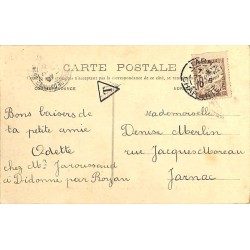 CARTE POSTALE
T
Bons baisers de
ta petite amie
Odette
chez Mr Jaroussaud
à Didonne par Royan
Mademoiselle
Denise Merlin
rue Jacques Moreau
Jarnac